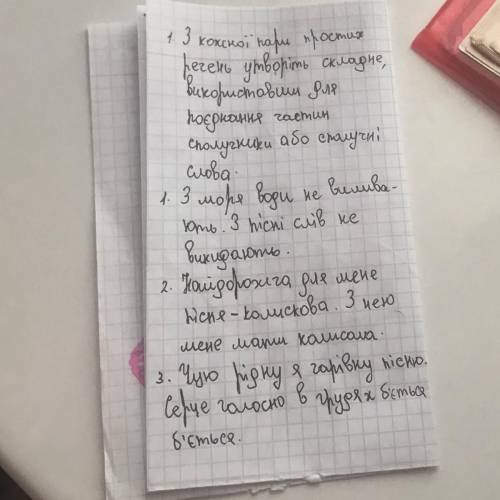 1. З кожної пари простих
речень утворіть складне,
використавши для
поєднання частин
сполучники або сполучні
слова.
1. З моря води не вилива-
ють. З пісні слів не
викидають.
2. Найдорожча для мене
пісня-колискова. З нею
мене мати колисала.
3. Чую рідну я чарівну пісню.
Серце голосно в грудях б'ється
б'ється.